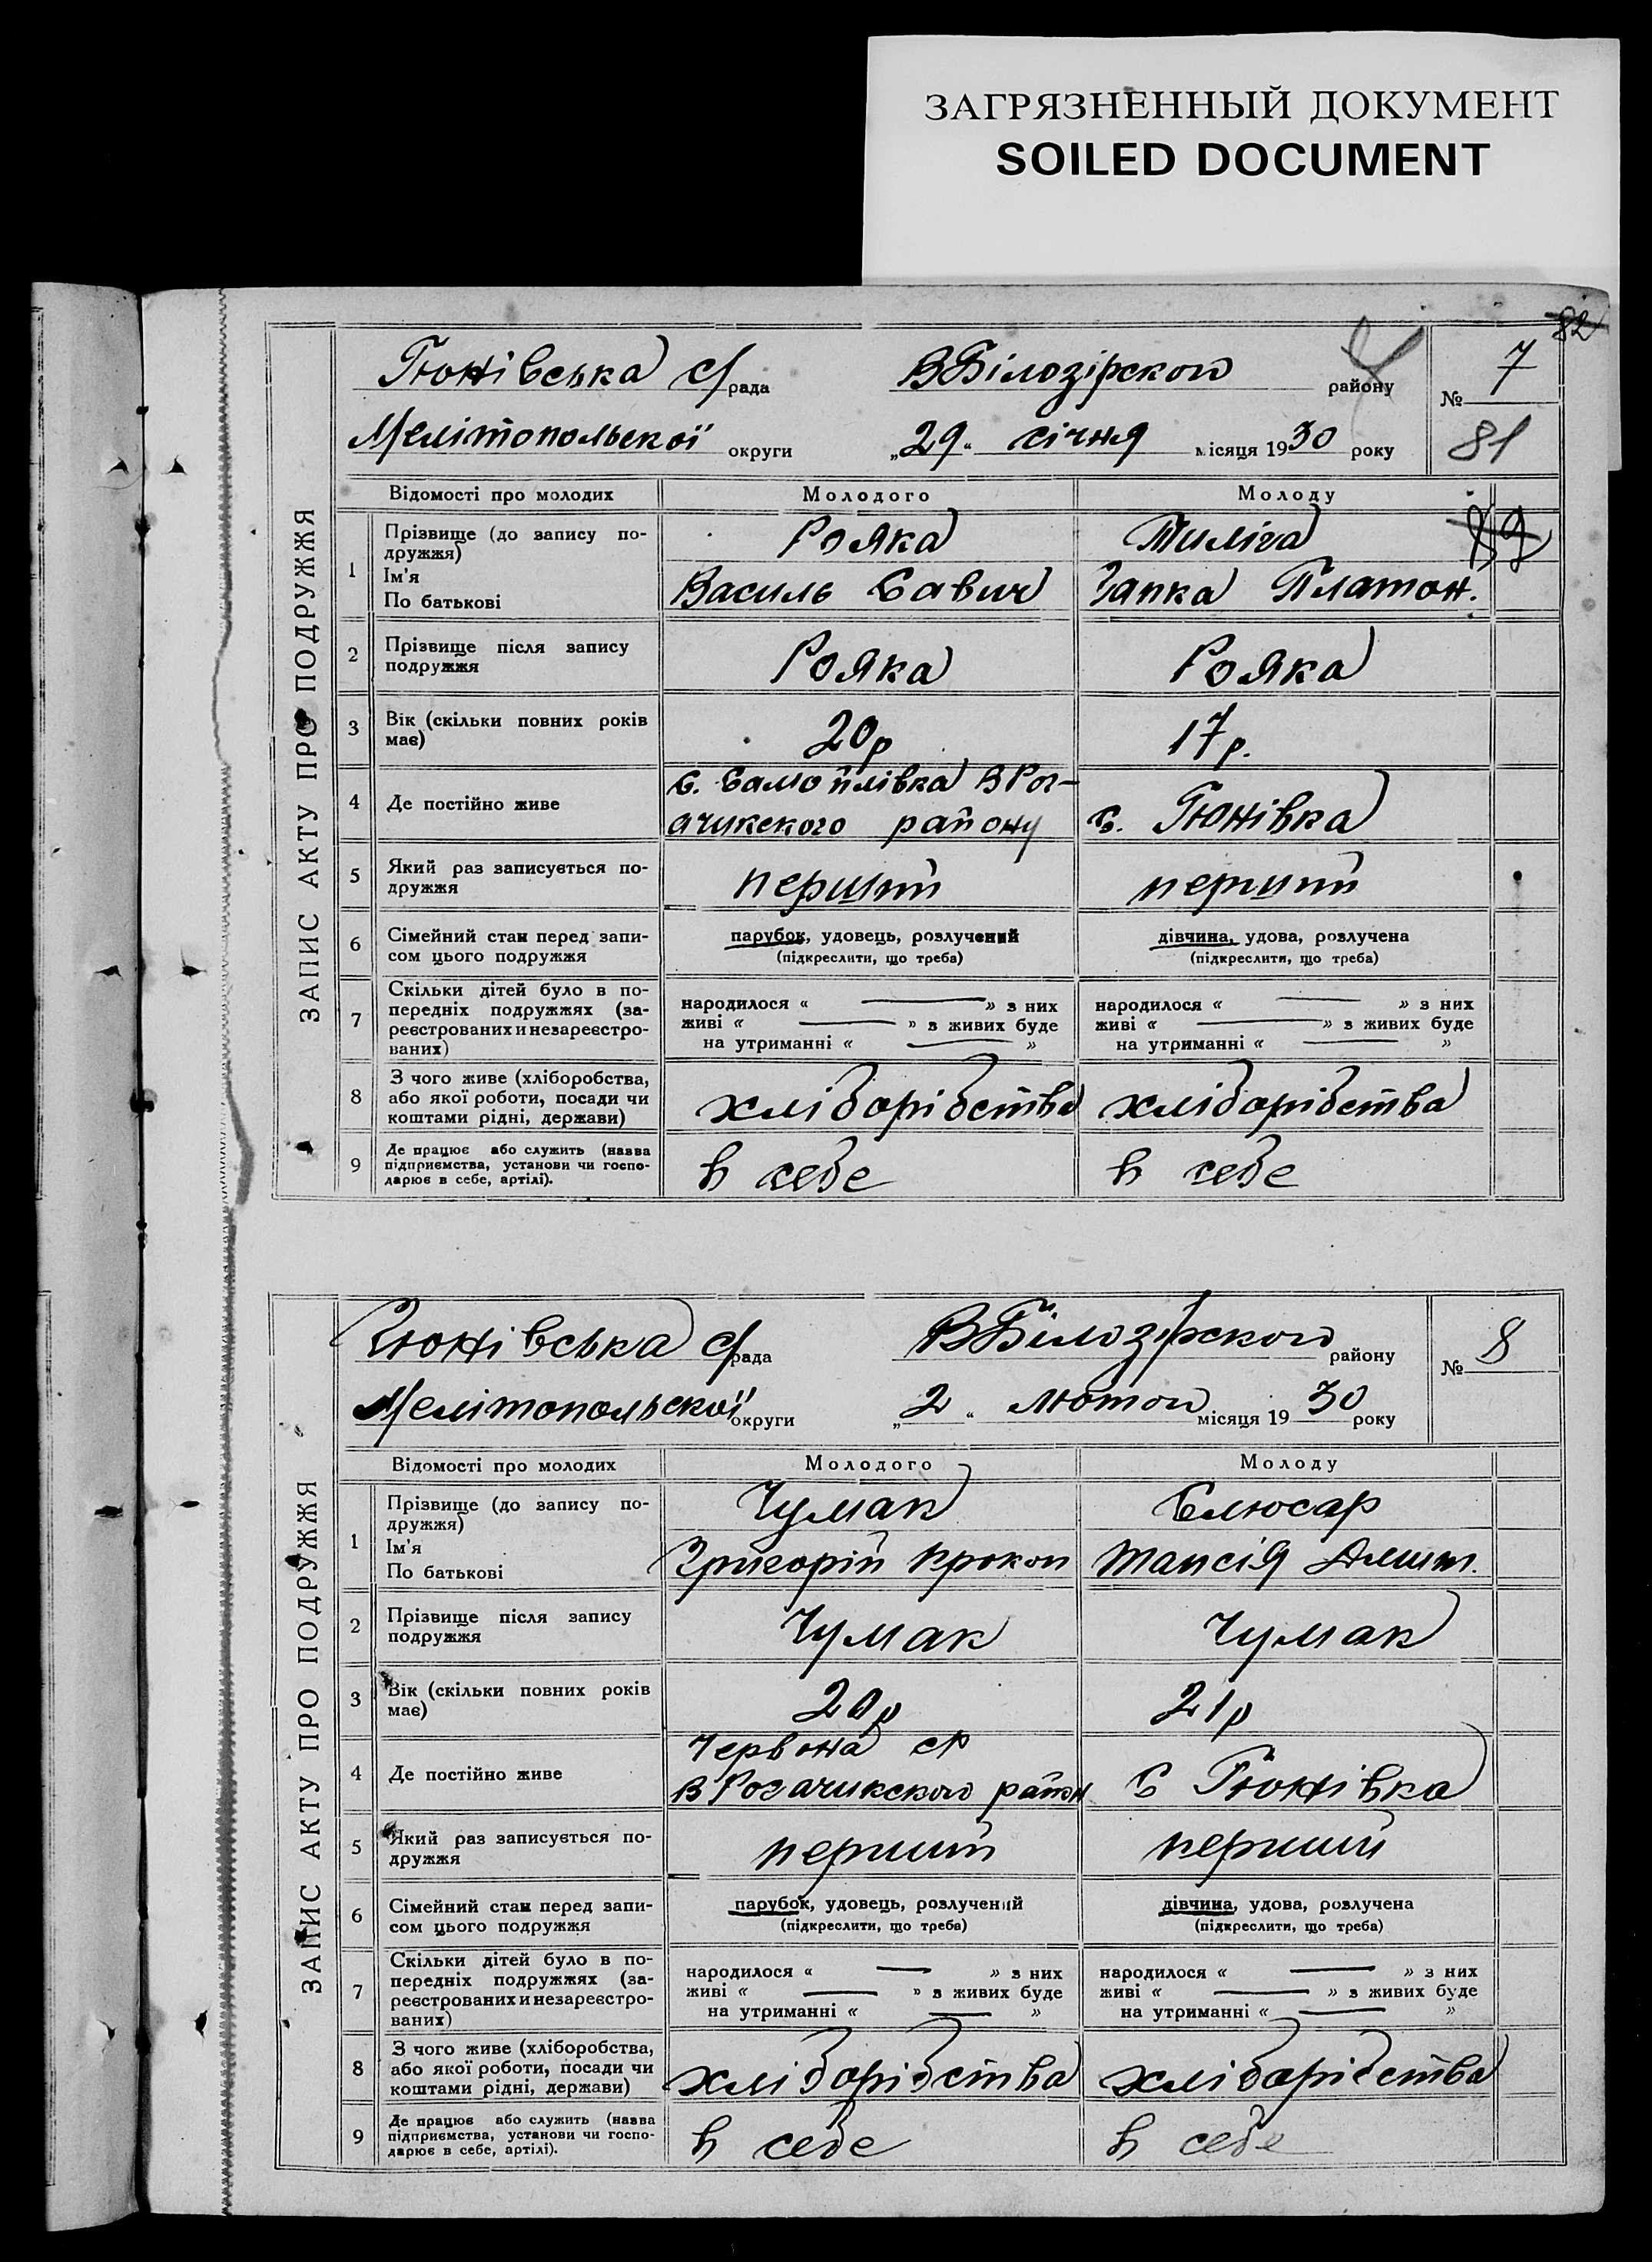 ЗАГРЯЗНЕННЫЙ ДОКУМЕНТ
SOILED DOCUMENT
82
Гюнівська с/рада ВБілозірского району № 7
Мелітопольської округи „29“ січня місяця 1930 року 81
ЗАПИС АКТУ ПРО ПОДРУЖЖЯ
Відомості про молодих Молодого Молоду
1 Прізвище (до запису подружжя) Рояка Тиліга
Ім'я
По батькові Василь Савич Гапка Платон.
2 Прізвище після запису подружжя Рояка Рояка
3 Вік (скільки повних років має) 20р 17р.
4 Де постійно живе с. Самойлівка ВРог-
ачикского району с. Гюнівка
5 Який раз записується по-
дружжя перший перший
6 Сімейний стан перед запи- парубок, удовець, розлучений дівчина, удова, розлучена
сом цього подружжя (підкреслити, що треба) (підкреслити, що треба)
7 Скільки дітей було в по-
передніх подружжях (за- народилося « —» з них народилося « — » з них
реєстрованих и незареєстро- живі « — » з живих буде живі « —» з живих буде
ваних) на утриманні « — » на утриманні « — »
8 З чого живе (хліборобства,
або якої роботи, посади чи хліборібства хліборібства
коштами рідні, держави)
9 Де працює або служить (назва
підприємства, установи чи госпо- в себе в себе
дарює в себе, артілі).
Гюнівська с/рада ВБілозірского району № 8
Мелітопольської округи „2“ лютого місяця 1930 року
ЗАПИС АКТУ ПРО ПОДРУЖЖЯ
Відомості про молодих Молодого Молоду
1 Прізвище (до запису по-
дружжя) Чумак Слюсар
Ім'я
По батькові Григорій Прокоп Таисія
2 Прізвище після запису
подружжя Чумак Чумак
3 Вік (скільки повних років
має) 20р 21р
4 Де постійно живе Червона ср
ВРогачикского район с Гюнівка
5 Який раз записується по-
дружжя перший перший
6 Сімейний стан перед запи- парубок, удовець, розлучений дівчина, удова, розлучена
сом цього подружжя (підкреслити, що треба) (підкреслити, що треба)
7 Скільки дітей було в по-
передніх подружжях (за- народилося « — » з них народилося « — » з них
реєстрованих и незареєстро- живі « — » з живих буде живі « — » з живих буде
ваних) на утриманні « — » на утриманні « — »
8 З чого живе (хліборобства,
або якої роботи, посади чи хліборібства хліборібства
коштами рідні, держави)
9 Де працює або служить (назва
підприємства, установи чи госпо- в себе в себе
дарює в себе, артілі).